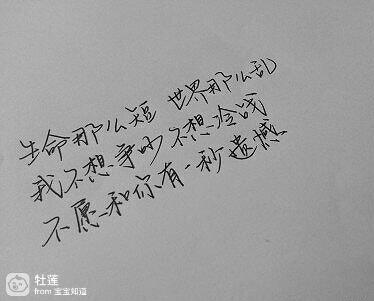 生命那么短 世界那么乱
我不想争吵 不想冷战
不愿和你有一秒遗憾
牡莲
from 宝宝知道